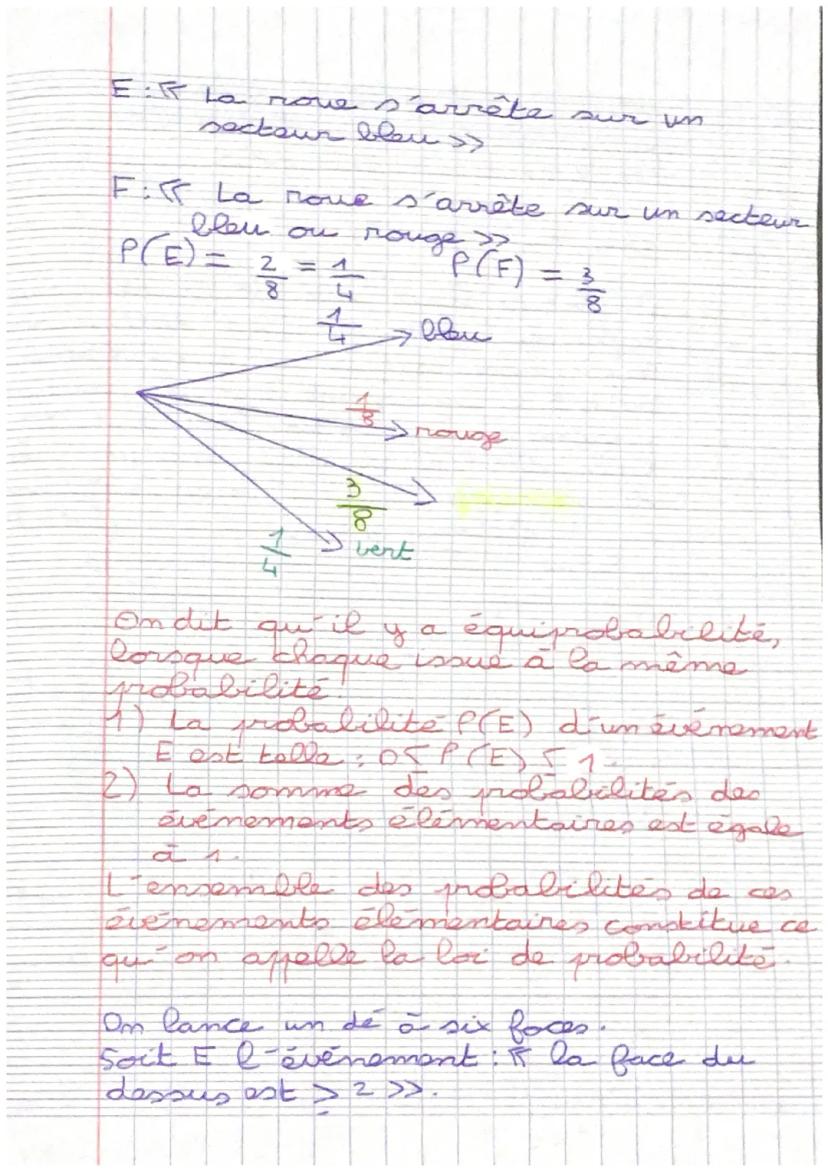 E : « La roue s'arrête sur un
secteur bleu »
F : « La roue s'arrête sur un secteur
bleu ou rouge »
P(E) = 2/8 = 1/4 P(F) = 3/8
1/4 bleu
1/8 rouge
3/8
1/4 vert
On dit qu'il y a équiprobabilité,
lorsque chaque issue à la même
probabilité.
1) La probabilité P(E) d'un événement
E est telle : 0 ≤ P(E) ≤ 1.
2) La somme des probabilités des
événements élémentaires est égale
à 1.
L'ensemble des probabilités de ces
événements élémentaires constitue ce
qu'on appelle la loi de probabilité.
On lance un dé à six faces.
Soit E l'événement : « la face du
dessus est ≥ 2 ».